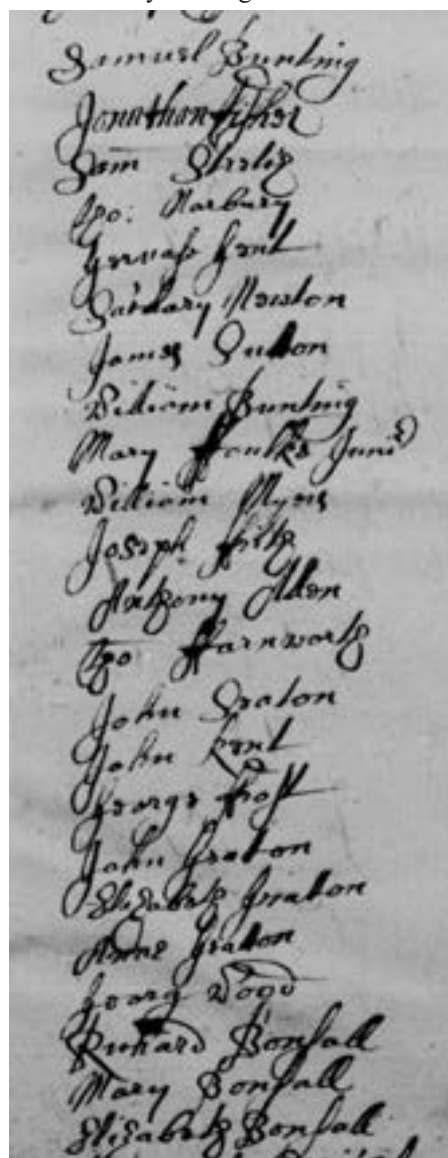 Samuel Bunting
Jonathan ffisher
Sam
Tho: Narbury
Gervase Kent
Zachary Newton
James Sutton
William Bunting
Mary ffoulke Junir
William Myers
Joseph
Anthony Allen
Tho ffarnworth
John Seaton
John Kent
George ffrost
John Gratton
Elizabeth Gratton
Anne Gratton
Georg Wood
Richard Bonsall
Mary Bonsall
Elizabeth Bonsall